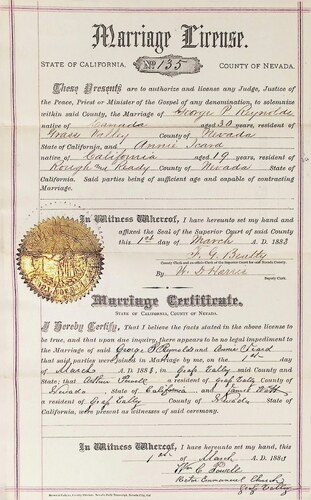 Marriage License.
STATE OF CALIFORNIA, No. 135 COUNTY OF NEVADA.
These Presents are to authorize and license any Judge, Justice of
the Peace, Priest or Minister of the Gospel of any denomination, to solemnize
within said County, the Marriage of George P. Reynolds
native of Canada aged 30 years, resident of
Grass Valley County of Nevada
State of California, and Annie Icard
native of California aged 19 years, resident of
Rough and Ready County of Nevada State of
California. Said parties being of sufficient age and capable of contracting
Marriage.
In Witness Whereof, I have hereunto set my hand and
affixed the Seal of the Superior Court of said County
this 1st day of March A. D. 1883
F. G. Beatty
County Clerk and ex-officio Clerk of the Superior Court for said Nevada County.
By W. D. Harris
Deputy Clerk.
Marriage Certificate.
STATE OF CALIFORNIA, COUNTY OF NEVADA.
I Hereby Certify, That I believe the facts stated in the above license
to be true, and that upon due inquiry, there appears to be no legal impediment to
the Marriage of said George P Reynolds and Annie Icard
that said parties were joined in Marriage by me, on the 1st day
of March A. D. 1883, in Grass Valley said County and
State; that Arthur Powell a resident of Grass Valley County of
Nevada, State of California and Janet
a resident of Grass Valley County of Nevada State of
California, were present as witnesses of said ceremony.
In Witness Whereof, I have hereunto set my hand, this
1st of March A. D. 1883
Wm C Powell
Rector Emmanuel Church
Grass Valley